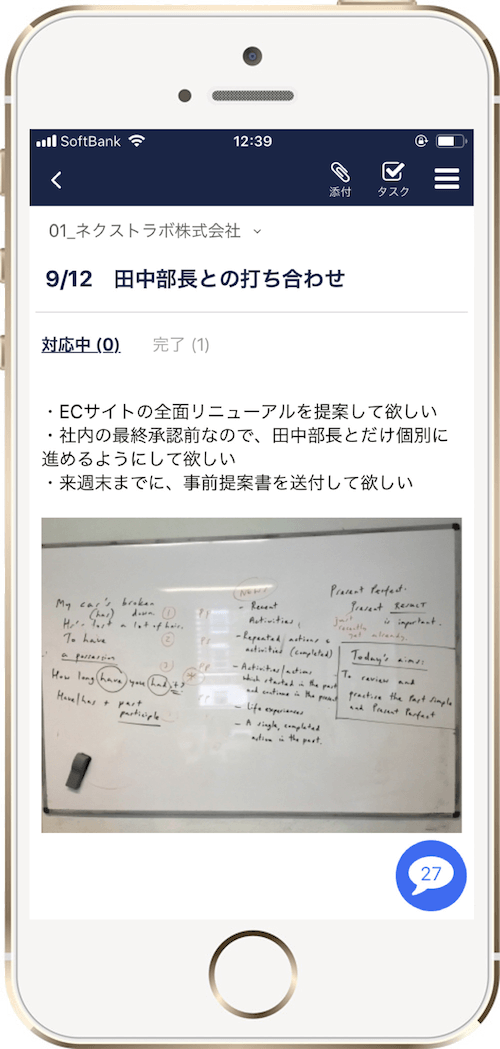 SoftBank 12:39
添付 タスク
01_ネクストラボ株式会社
9/12 田中部長との打ち合わせ
対応中 (0) 完了 (1)
・ECサイトの全面リニューアルを提案して欲しい
・社内の最終承認前なので、田中部長とだけ個別に
進めるようにして欲しい
・来週末までに、事前提案書を送付して欲しい
My car's broken
(has) down. 1
He's lost a lot of hair.
To have 2
a possession
3
How long have you had it?
Have/has + past
participle
Notes
- Recent
Activities
- Repeated actions &
activities (completed)
- Activities/actions
which started in the past
and continue in the present
- Life experiences
- A single, completed
action in the past.
Present Perfect.
Present RESULT
is important.
just
recently
yet already.
Today's aims:
To review and
practise the Past Simple
and Present Perfect
27